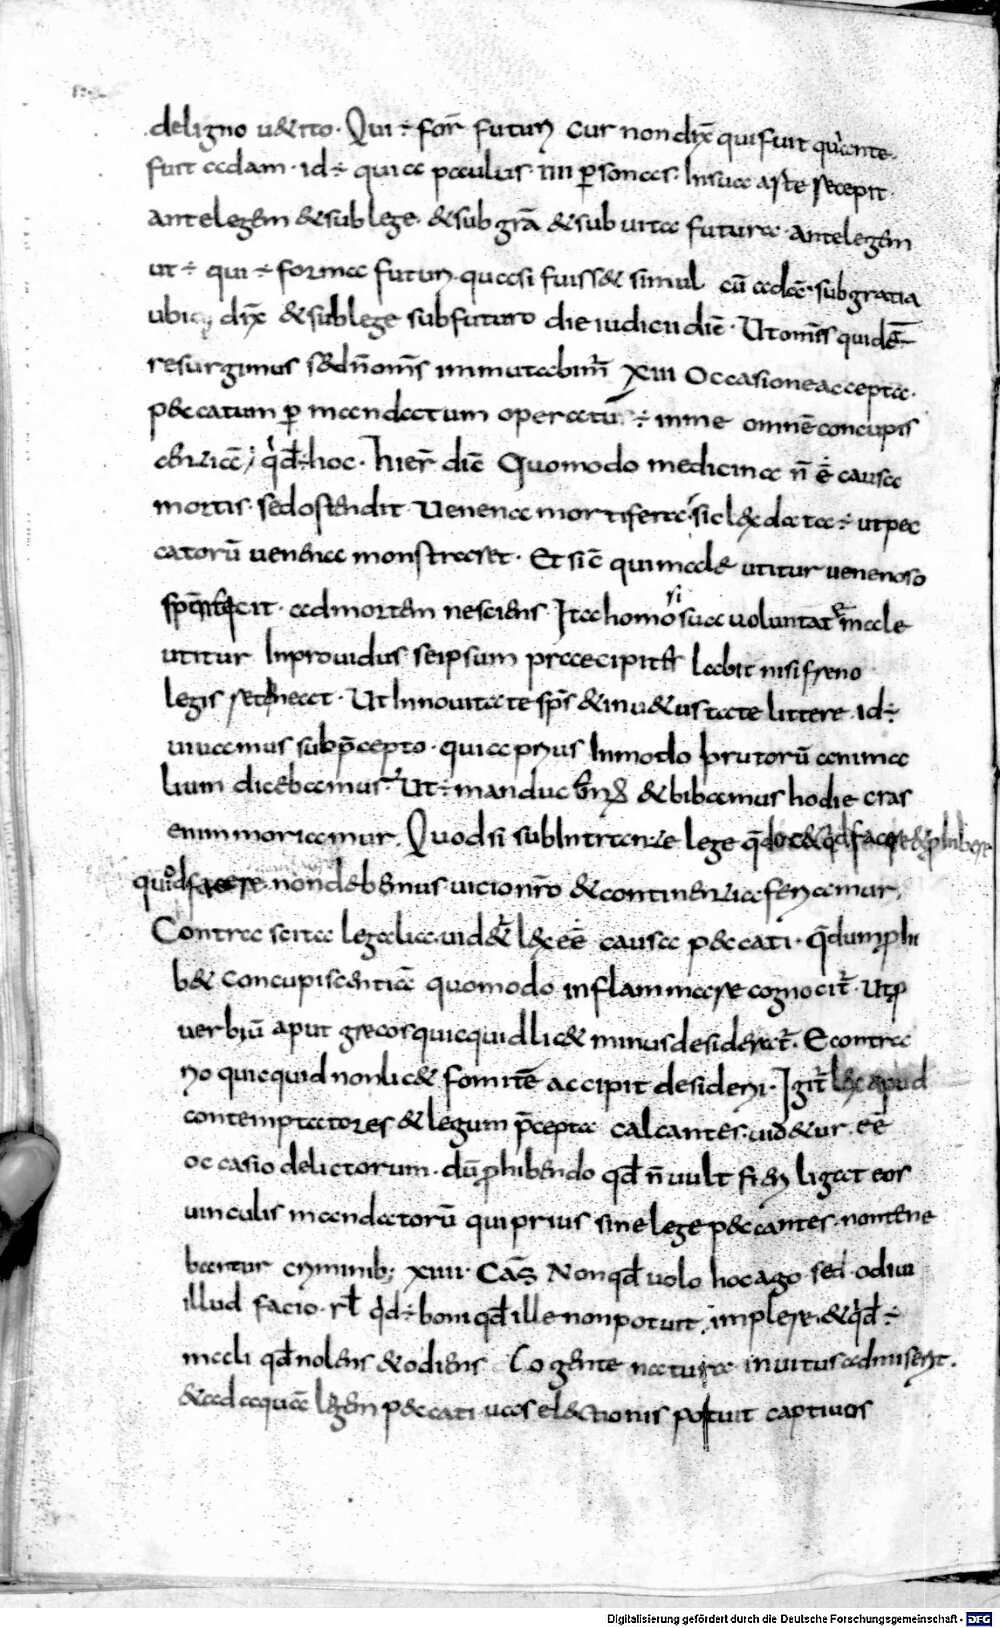 de ligno uetito. Qui ÷ for̄ futuri Cur non dix̄ qui fuit qui ante
fuit adam. id÷ quia paulus iiii p̱sonas. In sua arte recepit.
ante legem & sub lege. & sub grā & sub uita futura. Ante legem
ut÷ qui÷ forma futuri. quasi fuiss& simul cū adā. sub gratia
ubi dix̄ & sub lege sub futuro die iudicii diē. Ut om̄s quidē
resurgimus sed n̄ om̄s inmutabim̄ XIII Occasione accepta.
peccatum p̱ mandatum operatū ÷ in me omnē concupis
centiā; qd̄÷ hoc. hier̄ diē Quomodo medicina n̄ ē causa
mortis. sed ostendit Uenena mortifera. sic lex data÷ ut pec
catorū uenena monstraret. Et sic qui male utitur uenenoso
ad mortem nesciens. Ita homo si sua uoluntate male
utitur Inprouidus seipsum praecipitat labit nisi freno
legis retineat. Ut In nouitate sp̄s & in uetustate littere. id÷
uiuamus sub p̄cepto. qui a prius In modo brutorū anima
lium dicebamus. Ut÷ manduc & bibamus hodie cras
enim moriamur. Quod si sub Intrante lege qd̄ doc& qd̄ facere & phiber&
quod facere non debemus uicio nr̄o & continentia feriamur.
Contra scita legalia. uidet̄ lex eē causa peccati. qd̄ dum phi
b& concupiscentiā quomodo inflammare cognocit̄. Ut p
uerbiū aput grecos quicquid lic& minus desiderat̄. E contra
rio quicquid non lic& fomitē accipit desiderii. Igit̄ lex apud
contemptatores & legum p̄cepta calcantes. uidetur. eē
occasio delictorum. dū phibendo qd̄ n̄ uult fieri ligat eos
uinculis mandatorū qui prius sine lege peccantes. non tene
bantur criminib; XIIII. Cās Non qd̄ uolo hoc ago. sed. odiui
illud facio. rl̄ qd̄÷ boni qd̄ ille non potuit implere. & qd̄÷
mali qd̄ nolens & odiens Cogente natura inuitus admiserit.
& ad aquā legem peccati uas electionis potuit captiuos